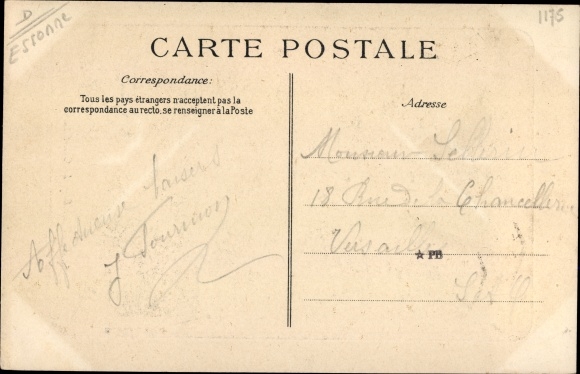 D
ESSONNE
1175
CARTE POSTALE
Correspondance:
Tous les pays étrangers n'acceptent pas la
correspondance au recto, se renseigner à la Poste
Adresse
Affectueux baisers
J
Monsieur
18 Rue de la Chancellerie
Versailles
★ PB
S & O